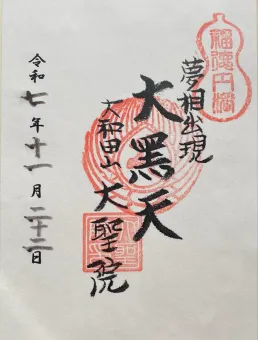 福徳円満
夢相出現
大黑天
大和田山
大聖院
令和七年十一月二十二日